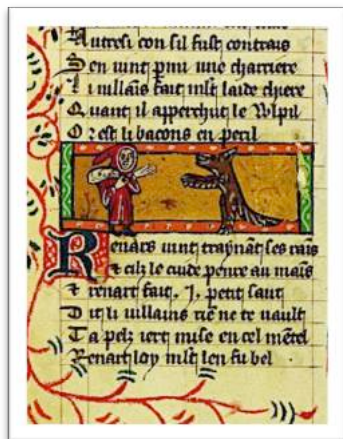 Autresi con sil fust contrais
Sen uint pmi une charriere
Li uilains fait mlt laide chiere
Quant il apperchut le Wlpil
Or est li bacons en peril
Renars uint traynãt ses rais
& cilz le cuide penre au mais
& renart fait .J. petit saut
Dit li uillains riẽ ne te uault
Ta pelz iert mise en cel mẽtel
Renart loy mlt len fu bel